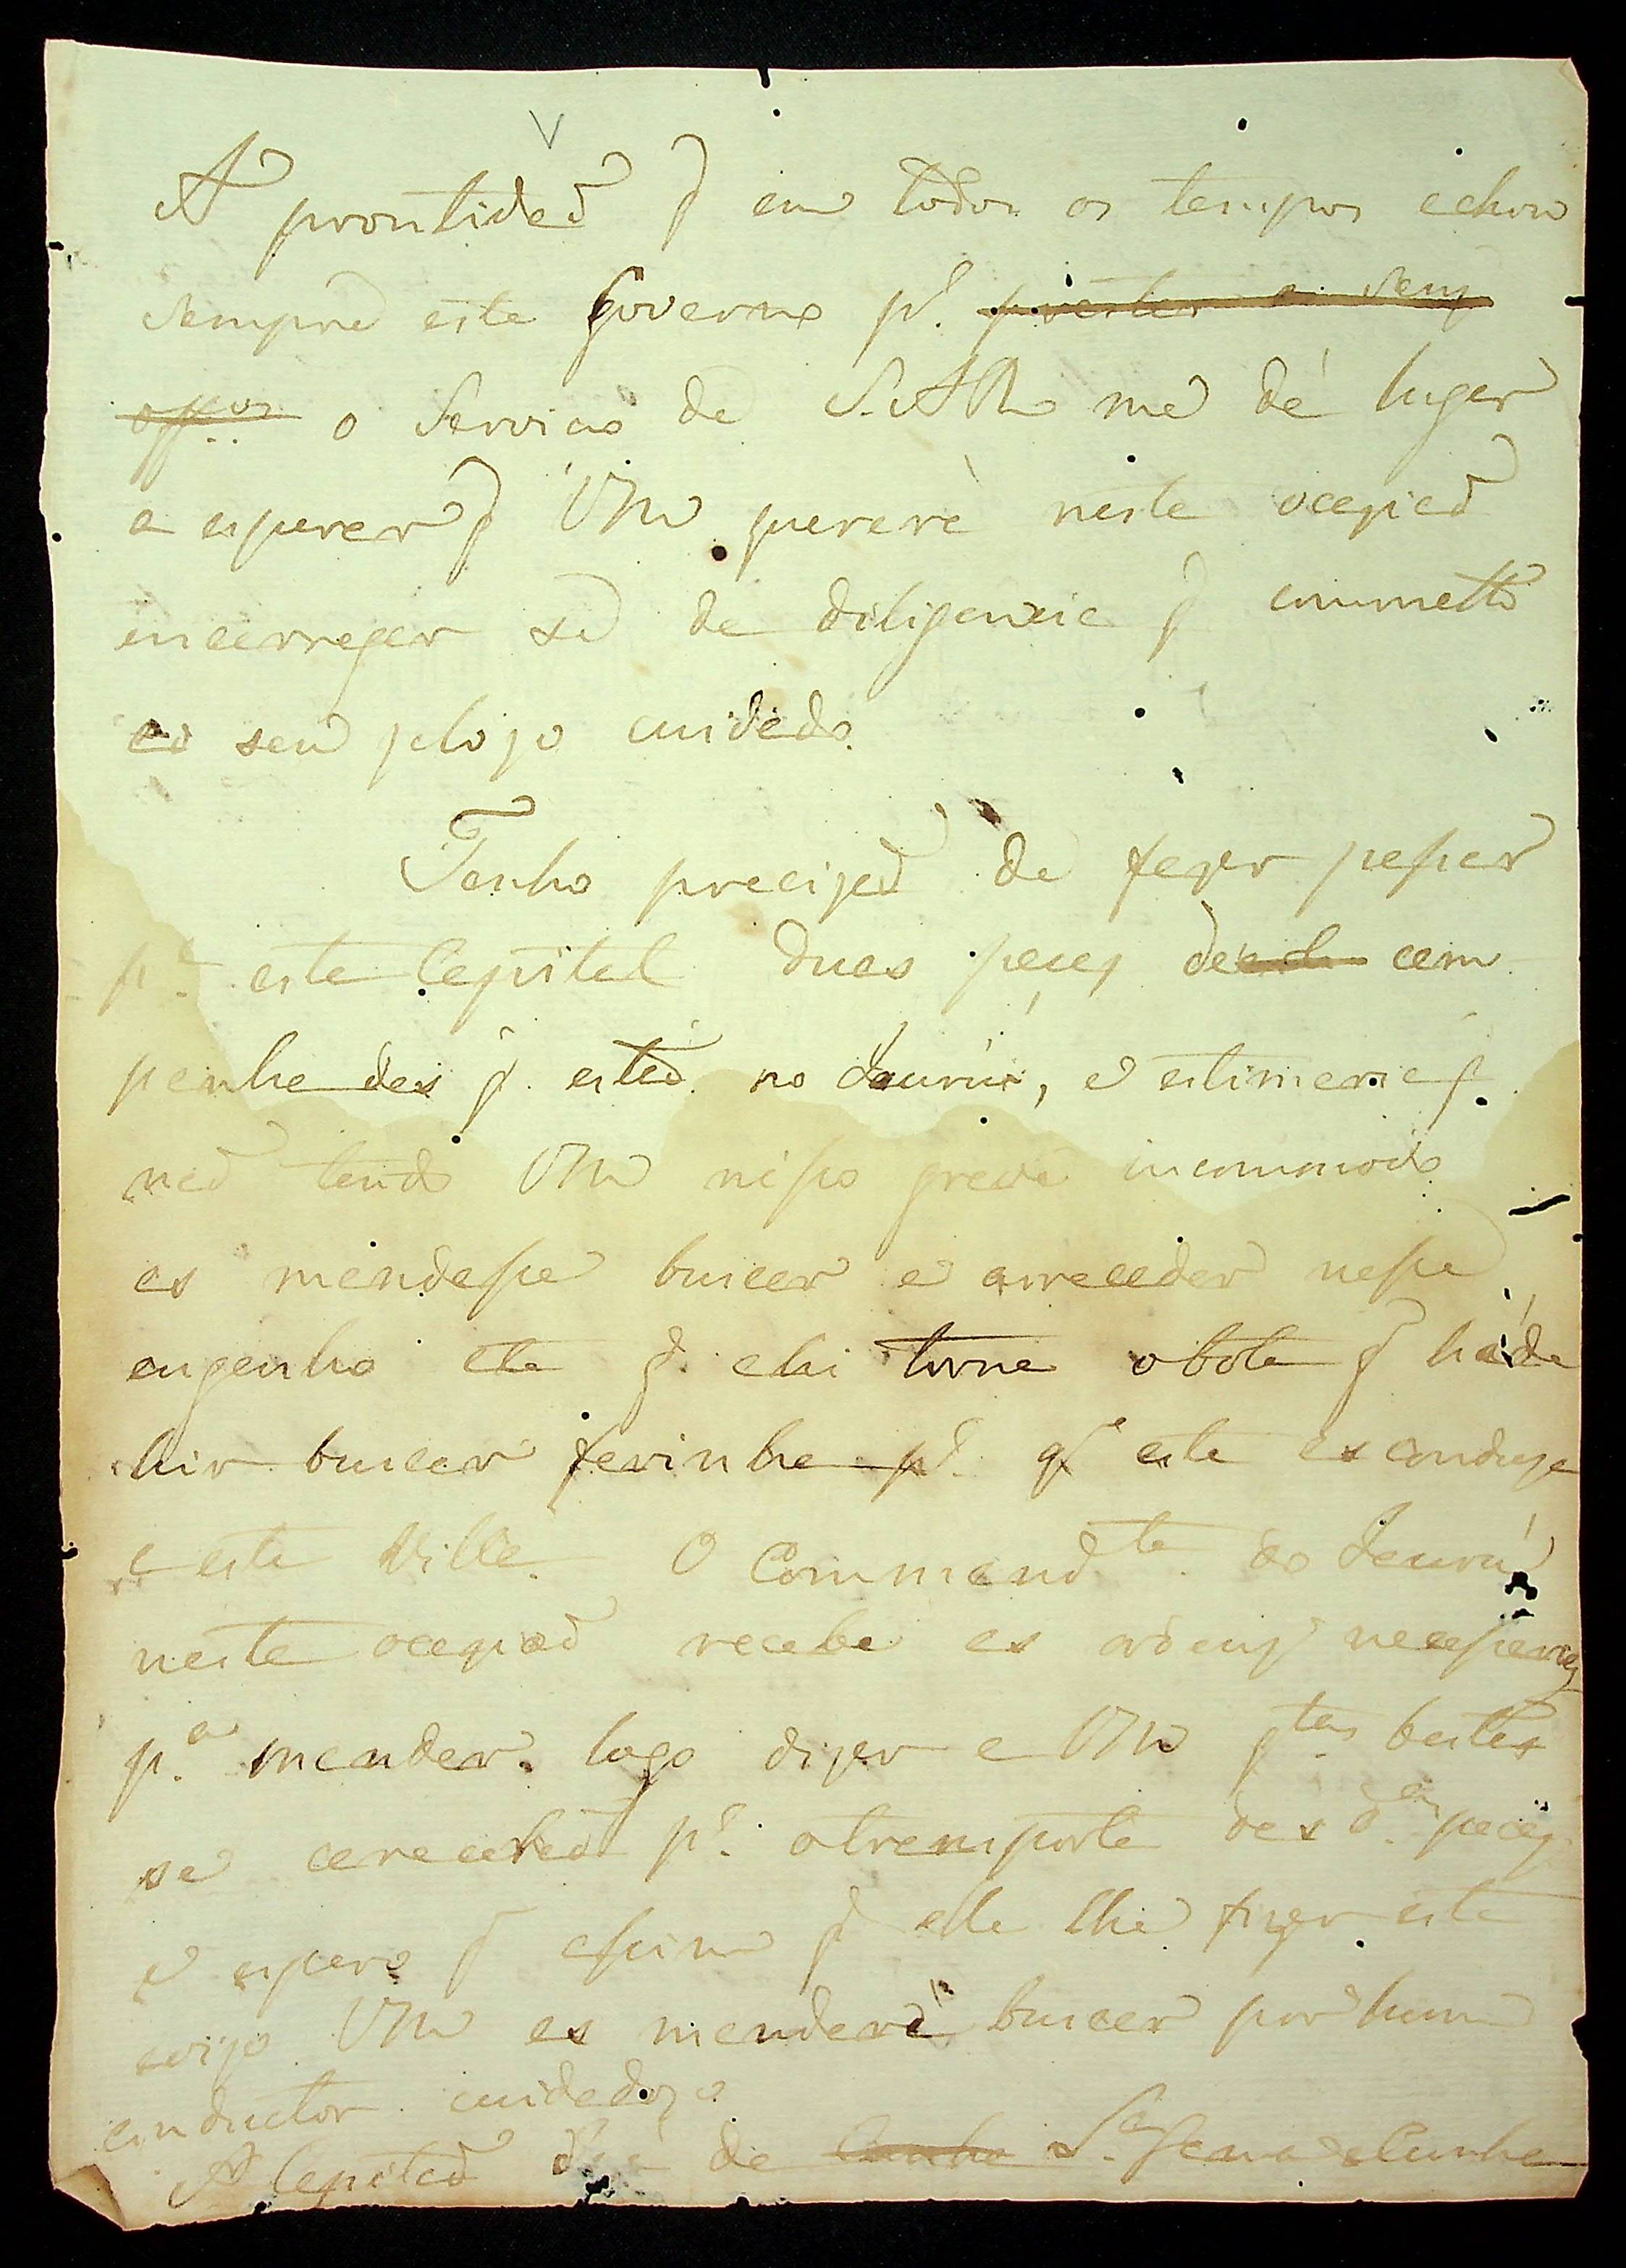 A prontidaõ q̃ em todos os tempos achou
Sempre este Governo pª. prestar os seus
offos o Servico de S.A.R. me dá lugar
a esperar q̃ VM quererá nesta ocaziaõ
encarregar se da diligencia q̃ commetto
ao seu zelozo cuidado.
Tenho precizaõ de fazer passar
pª. esta Capital duas peças de cam
panha das q̃. estaõ no Jaurú, e estimaria q̃
naõ tendo VM nisso grave incommodo
as mandasse buscar e arrecadar nesse
engenho ate q̃. ahi torne o bote q̃ háde
hir buscar farinha pª. qᵉ este as conduza
a esta Villa. O Commandte. do Jaurú
nesta ocaziaõ recebe as ordens necessarias
p.ª mandar logo dizer a VM qtas bestas
se careceraõ pª. o transporte das das peças
e espero q̃ assim q̃ elle lhe fizer este
avizo VM as mandará buscar por hum
conductor cuidadozo
Ao Capitaõ da Sª. Gama da Cunha